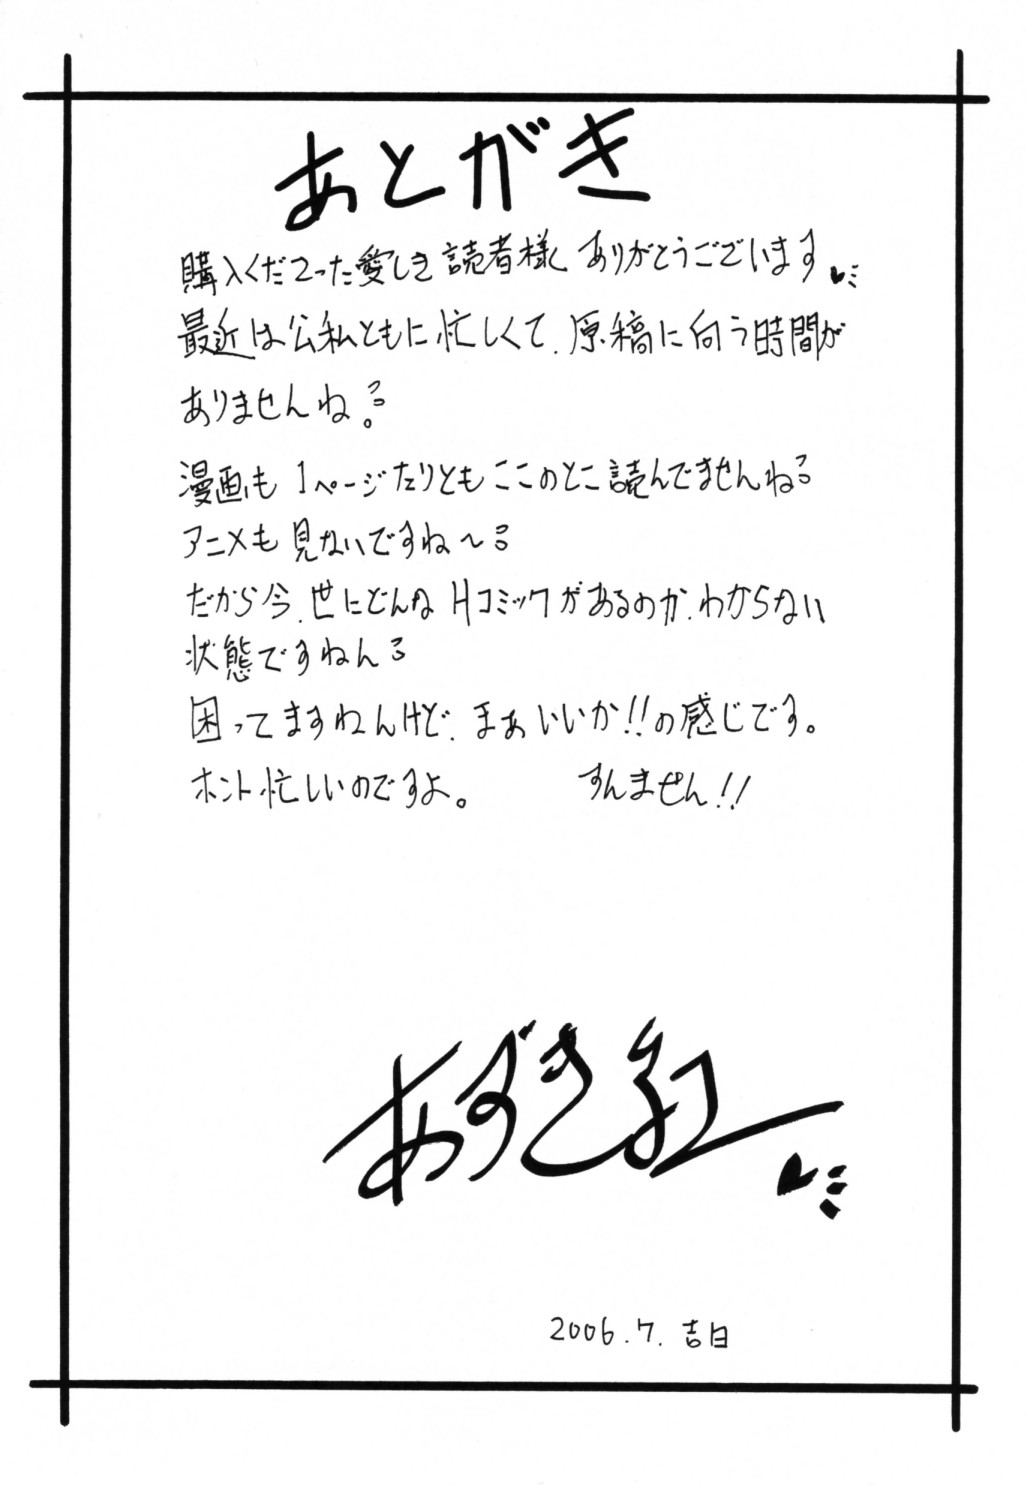 あとがき
購入くださった愛しき読者様 ありがとうございます
最近は公私ともに忙しくて、原稿に向う時間が
ありませんね。
漫画も1ページたりともここのとこ読んでませんねぇ
アニメも見ないですね〜
だから今、世にどんなHコミックがあるのか、わからない
状態ですねん
困ってますねんけど、まぁいいか!!の感じです。
ホント忙しいのですよ。 すんません!!
あずき紅
2006.7.吉日